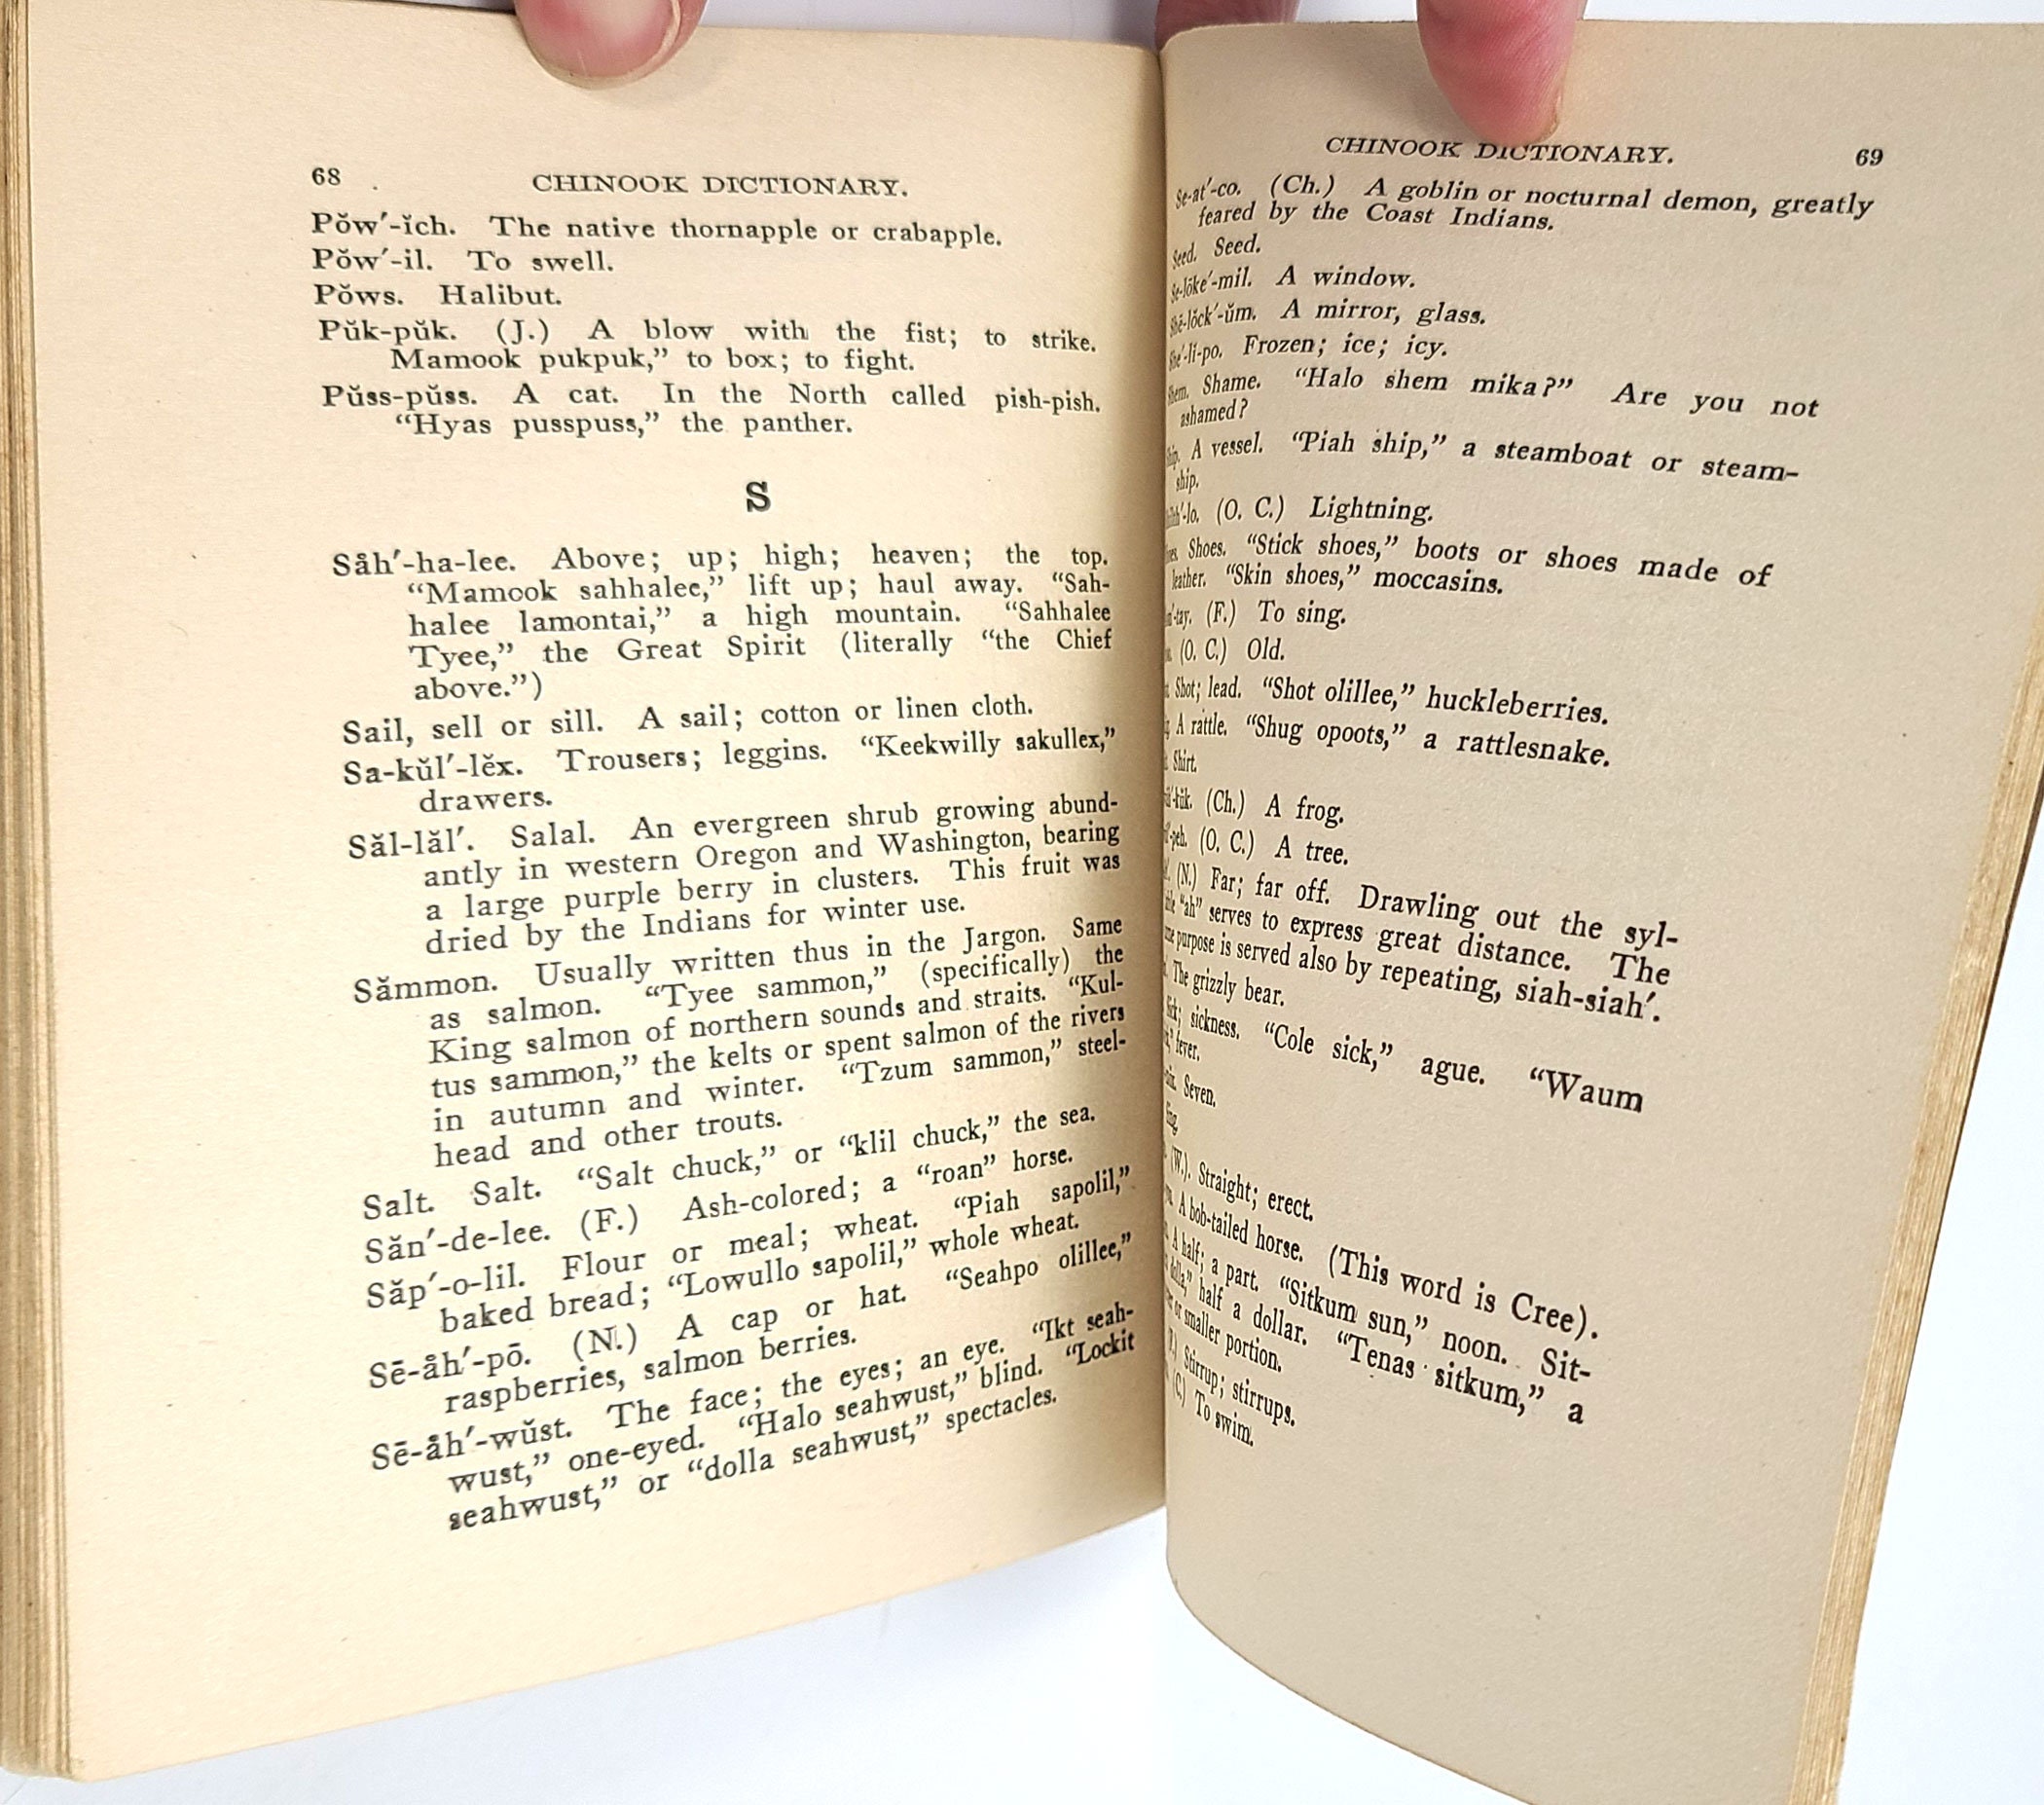 68 CHINOOK DICTIONARY.
Pŏw′-ĭch. The native thornapple or crabapple.
Pŏw′-il. To swell.
Pŏws. Halibut.
Pŭk-pŭk. (J.) A blow with the fist; to strike.
Mamook pukpuk,” to box; to fight.
Pŭss-pŭss. A cat. In the North called pish-pish.
“Hyas pusspuss,” the panther.
S
Såh′-ha-lee. Above; up; high; heaven; the top.
“Mamook sahhalee,” lift up; haul away. “Sah-
halee lamontai,” a high mountain. “Sahhalee
Tyee,” the Great Spirit (literally “the Chief
above.”)
Sail, sell or sill. A sail; cotton or linen cloth.
Sa-kŭl′-lĕx. Trousers; leggins. “Keekwilly sakullex,”
drawers.
Săl-lăl′. Salal. An evergreen shrub growing abund-
antly in western Oregon and Washington, bearing
a large purple berry in clusters. This fruit was
dried by the Indians for winter use.
Sămmon. Usually written thus in the Jargon. Same
as salmon. “Tyee sammon,” (specifically) the
King salmon of northern sounds and straits. “Kul-
tus sammon,” the kelts or spent salmon of the rivers
in autumn and winter. “Tzum sammon,” steel-
head and other trouts.
Salt. Salt. “Salt chuck,” or “klil chuck,” the sea.
Săn′-de-lee. (F.) Ash-colored; a “roan” horse.
Săp′-o-lil. Flour or meal; wheat. “Piah sapolil,”
baked bread; “Lowullo sapolil,” whole wheat.
Sē-åh′-pō. (N.) A cap or hat. “Seahpo olillee,”
raspberries, salmon berries.
Sē-åh′-wŭst. The face; the eyes; an eye. “Ikt seah-
wust,” one-eyed. “Halo seahwust,” blind. “Lockit
seahwust,” or “dolla seahwust,” spectacles.
CHINOOK DICTIONARY. 69
Se-at′-co. (Ch.) A goblin or nocturnal demon, greatly
feared by the Coast Indians.
Seed. Seed.
Se-lōke′-mil. A window.
Shē-lŏck′-ŭm. A mirror, glass.
She′-li-po. Frozen; ice; icy.
Shem. Shame. “Halo shem mika?” Are you not
ashamed?
Ship. A vessel. “Piah ship,” a steamboat or steam-
ship.
(O. C.) Lightning.
Shoes. “Stick shoes,” boots or shoes made of
leather. “Skin shoes,” moccasins.
(F.) To sing.
(O. C.) Old.
Shot; lead. “Shot olillee,” huckleberries.
A rattle. “Shug opoots,” a rattlesnake.
Shirt.
(Ch.) A frog.
(O. C.) A tree.
(N.) Far; far off. Drawling out the syl-
“ah” serves to express great distance. The
purpose is served also by repeating, siah-siah′.
The grizzly bear.
sickness. “Cole sick,” ague. “Waum
fever.
Seven.
(W.). Straight; erect.
A bob-tailed horse. (This word is Cree).
A half; a part. “Sitkum sun,” noon. Sit-
half a dollar. “Tenas sitkum,” a
or smaller portion.
Stirrup; stirrups.
(C.) To swim.